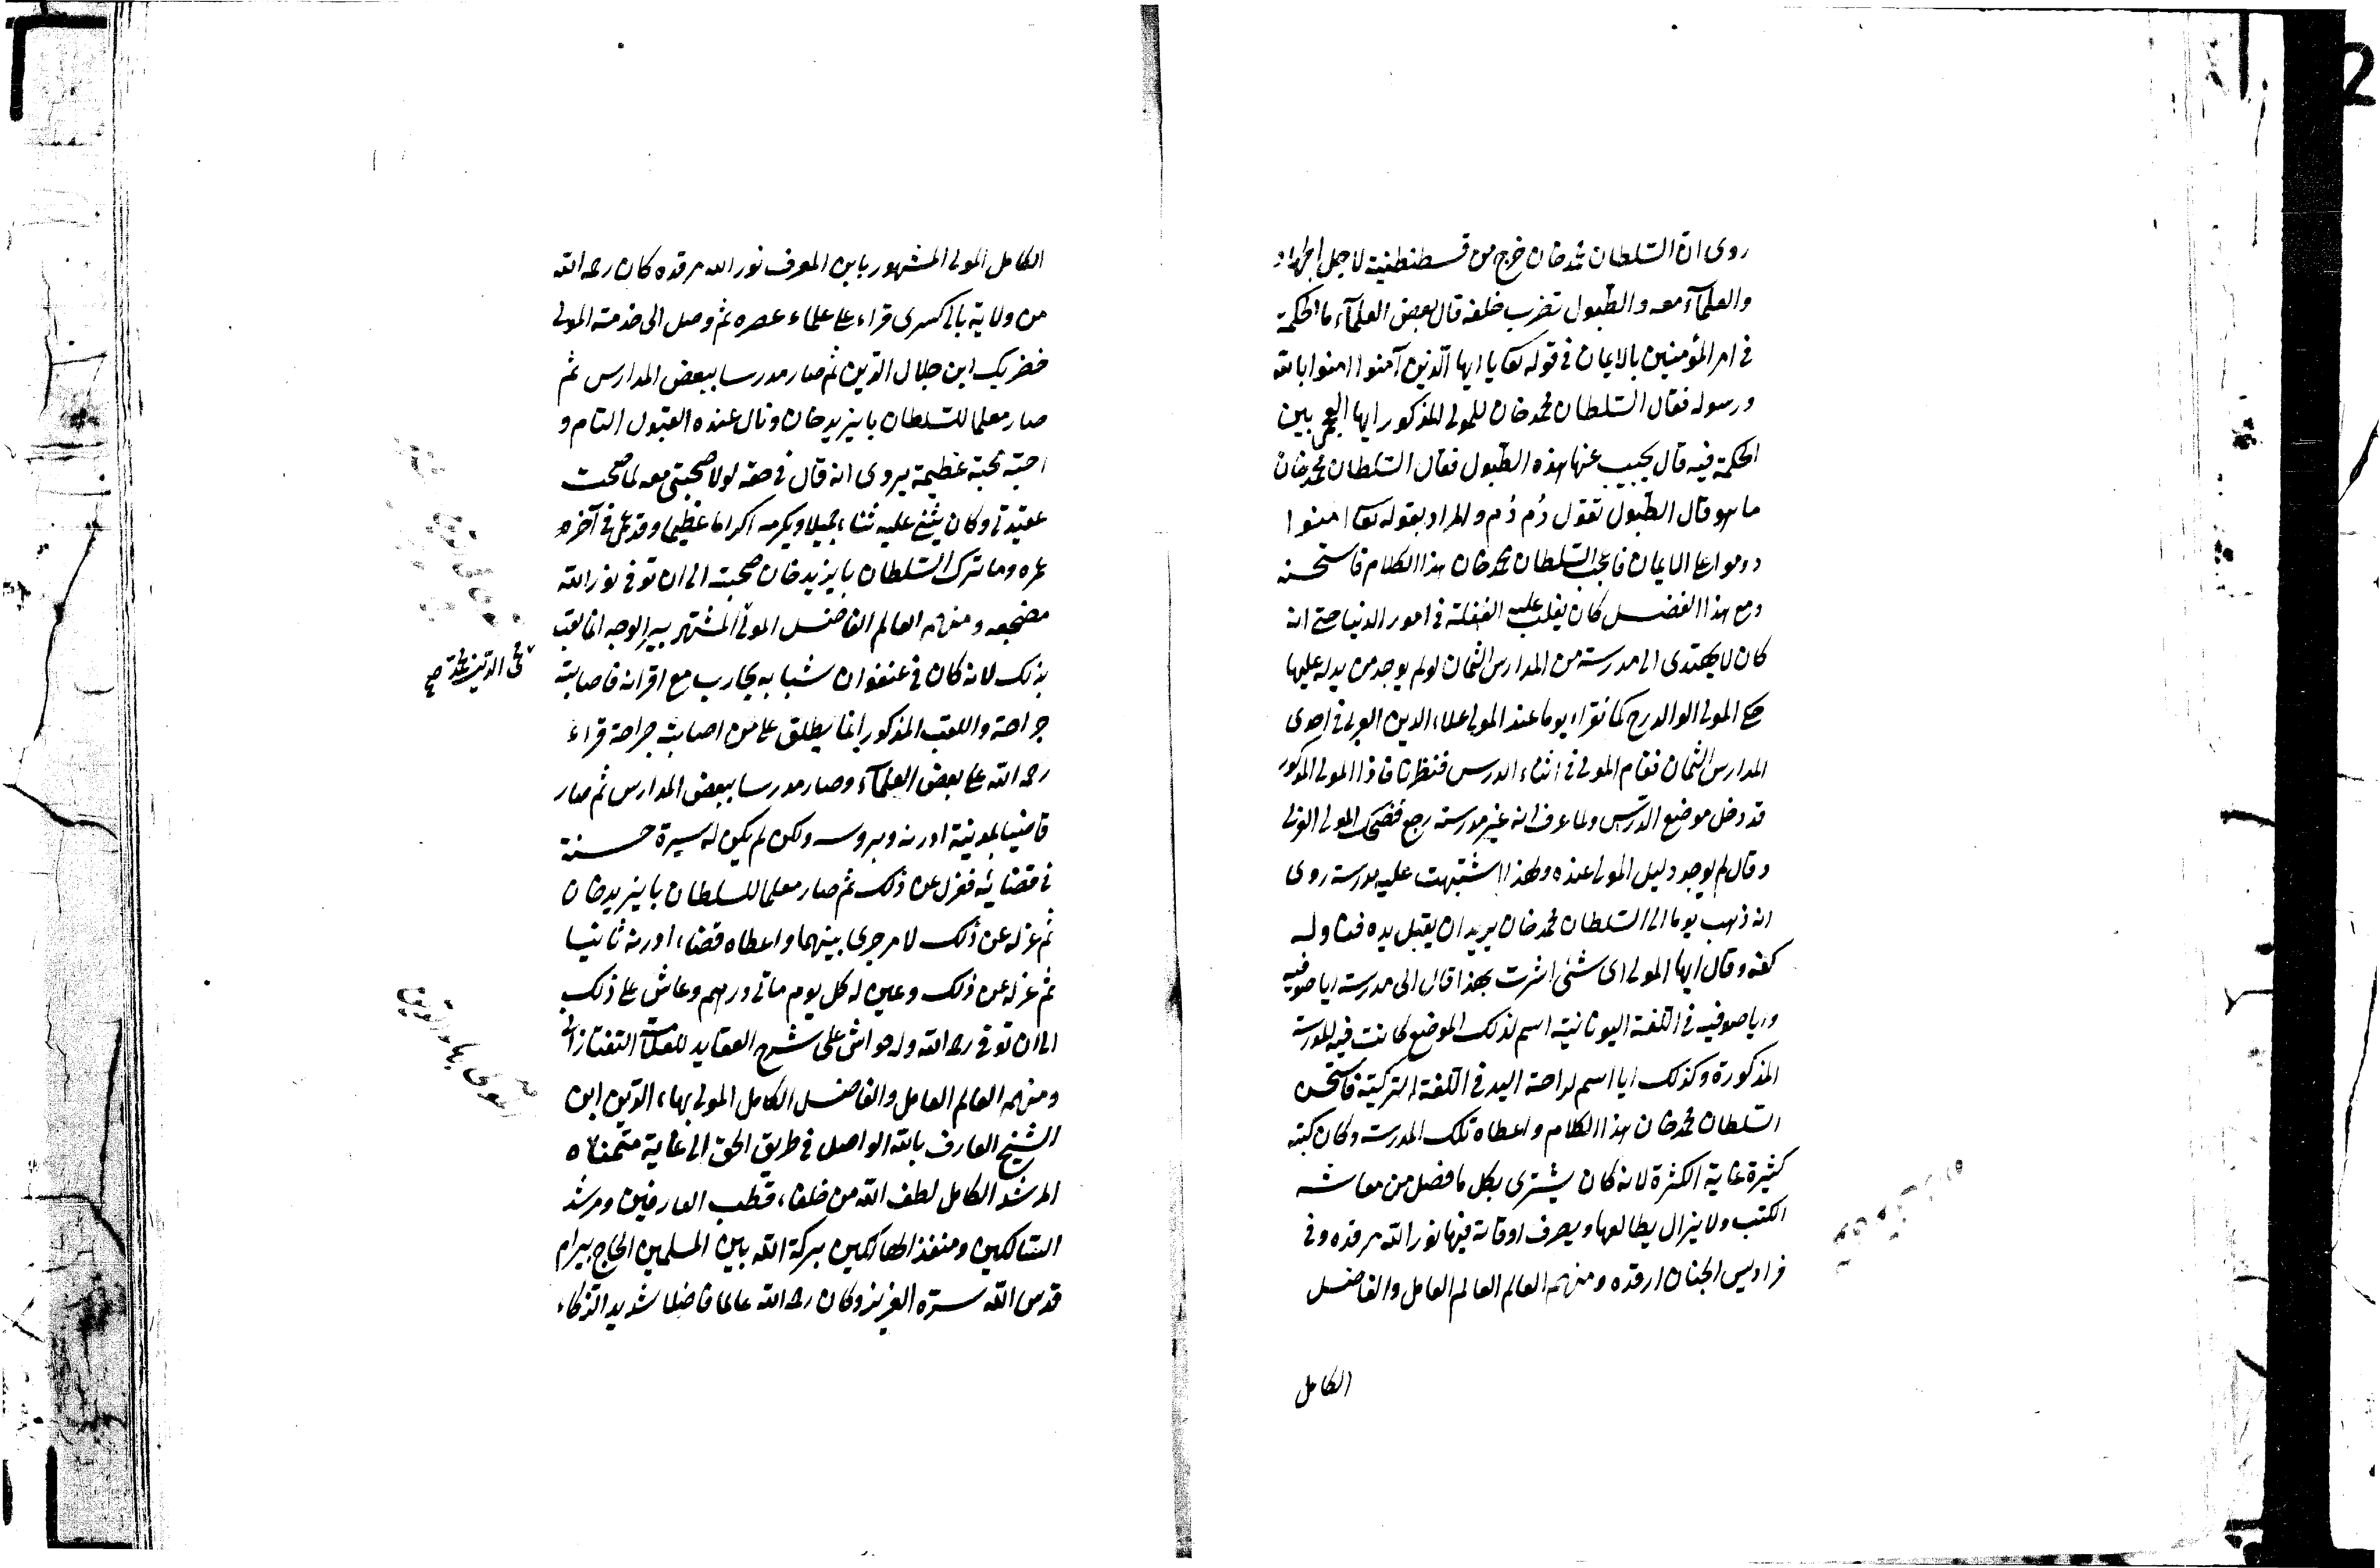 روى ان السلطان محمد خان خرج من قسطنطنية لاجل الجهاد
والعلمآء معه والطبول تضرب خلفه قال بعض العلمآء ما الحكمة
في امر المؤمنين بالايمان في قوله تعا يا ايها الذين آمنوا امنوا بالله
ورسوله فقال السلطان محمد خان للمولى المذكور ايها بين
الحكمة فيه قال يجيب عنها هذه الطبول فقال السلطان محمد خان
ما هو قال الطبول تقول دُم دُم والمراد بقوله تعا امنوا
دوموا على الايمان فاعجب السلطان محمد خان هذا الكلام فاستحسنه
ومع هذا الفضل كان يغلب عليه الغفلة في امور الدنيا حتى انه
كان لا يهتدى الى مدرسته من المدارس الثمان لو لم يوجد من يدله عليها
حكى المولى الوالد رح كنا نقراء يوما عند المولى علاء الدين العربى في احدى
المدارس الثمان فقام المولى في اثناء الدرس فنظرنا فاذا المولى المذكور
قد دخل موضع الدرس ولما عرف انه غير مدرسته رجع فضحك المولى العربى
وقال لم يوجد دليل المولى عنده ولهذا اشتبهت عليه مدرسته روى
انه ذهب يوما الى السلطان محمد خان يريد ان يقبل يده فناوله
كفه وقال ايها المولى اى شئ اشرت بهذا قال الى مدرسة اياصوفيه
واياصوفيه في اللغة اليونانية اسم لذلك الموضع كانت فيه المدرسة
المذكورة وكذلك ايا اسم لراحة اليد في اللغة التركية فاستحسن
السلطان محمد خان هذا الكلام واعطاه تلك المدرسة وكان كتبه
كثيرة غاية الكثرة لانه كان يشترى بكل ما فضل من معاشه
الكتب ولا يزال يطالعها ويصرف اوقاته فيها نور الله مرقده وفى
فراديس الجنان ارقده ومنهم العالم العالم العامل والفاضل
الكامل
الكامل المولى المشهور بابن المعرف نور الله مرقده كان رحمه الله
من ولاية بالى كسرى قراء على علماء عصره ثم وصل الى خدمة المولى
خضر بك ابن جلال الدين ثم صار مدرسا ببعض المدارس ثم
صار معلما للسلطان بايزيد خان ونال عنده القبول التام و
احبه محبة عظيمة يروى انه قال في حقه لولا صحبتى معه لما صحت
عقيدتى وكان يثنى عليه ثناء جميلا ويكرمه اكراما عظيما وقد عمى في آخر
عمره وما ترك السلطان بايزيد خان صحبته الى ان توفى نور الله
مضجعه ومنهم العالم الفاضل المولى المشتهر ببير الوجه انما لقب
محى الدين محمد صح
بذلك لانه كان في عنفوان شبابه يحارب مع اقرانه فاصابته
جراحة واللقب المذكور انما يطلق على من اصابته جراحة قراء
رحمه الله على بعض العلمآء وصار مدرسا ببعض المدارس ثم صار
قاضيا بمدينة ادرنه وبروسه ولكن لم يكن له سيرة حسنة
في قضائه فعزل عن ذلك ثم صار معلما للسلطان بايزيد خان
ثم عزله عن ذلك لامر جرى بينهما واعطاه قضاء ادرنة ثانيا
ثم عزله عن ذلك وعين له كل يوم مائى درهم وعاش على ذلك
الى ان توفى رحمه الله وله حواش على شرح العقايد للعلامة التفتازانى
ومنهم العالم العامل والفاضل الكامل المولى بهاء الدين ابن
المولى بهاء الدين
الشيخ العارف بالله الواصل في طريق الحق الى غاية متمناه
المرشد الكامل لطف الله من خلفاء قطب العارفين ومرشد
السالكين ومنقذ الهالكين بركة الله بين المسلمين الحاج بيرام
قدس الله سره العزيز وكان رحمه الله عالما فاضلا شديد الذكاء